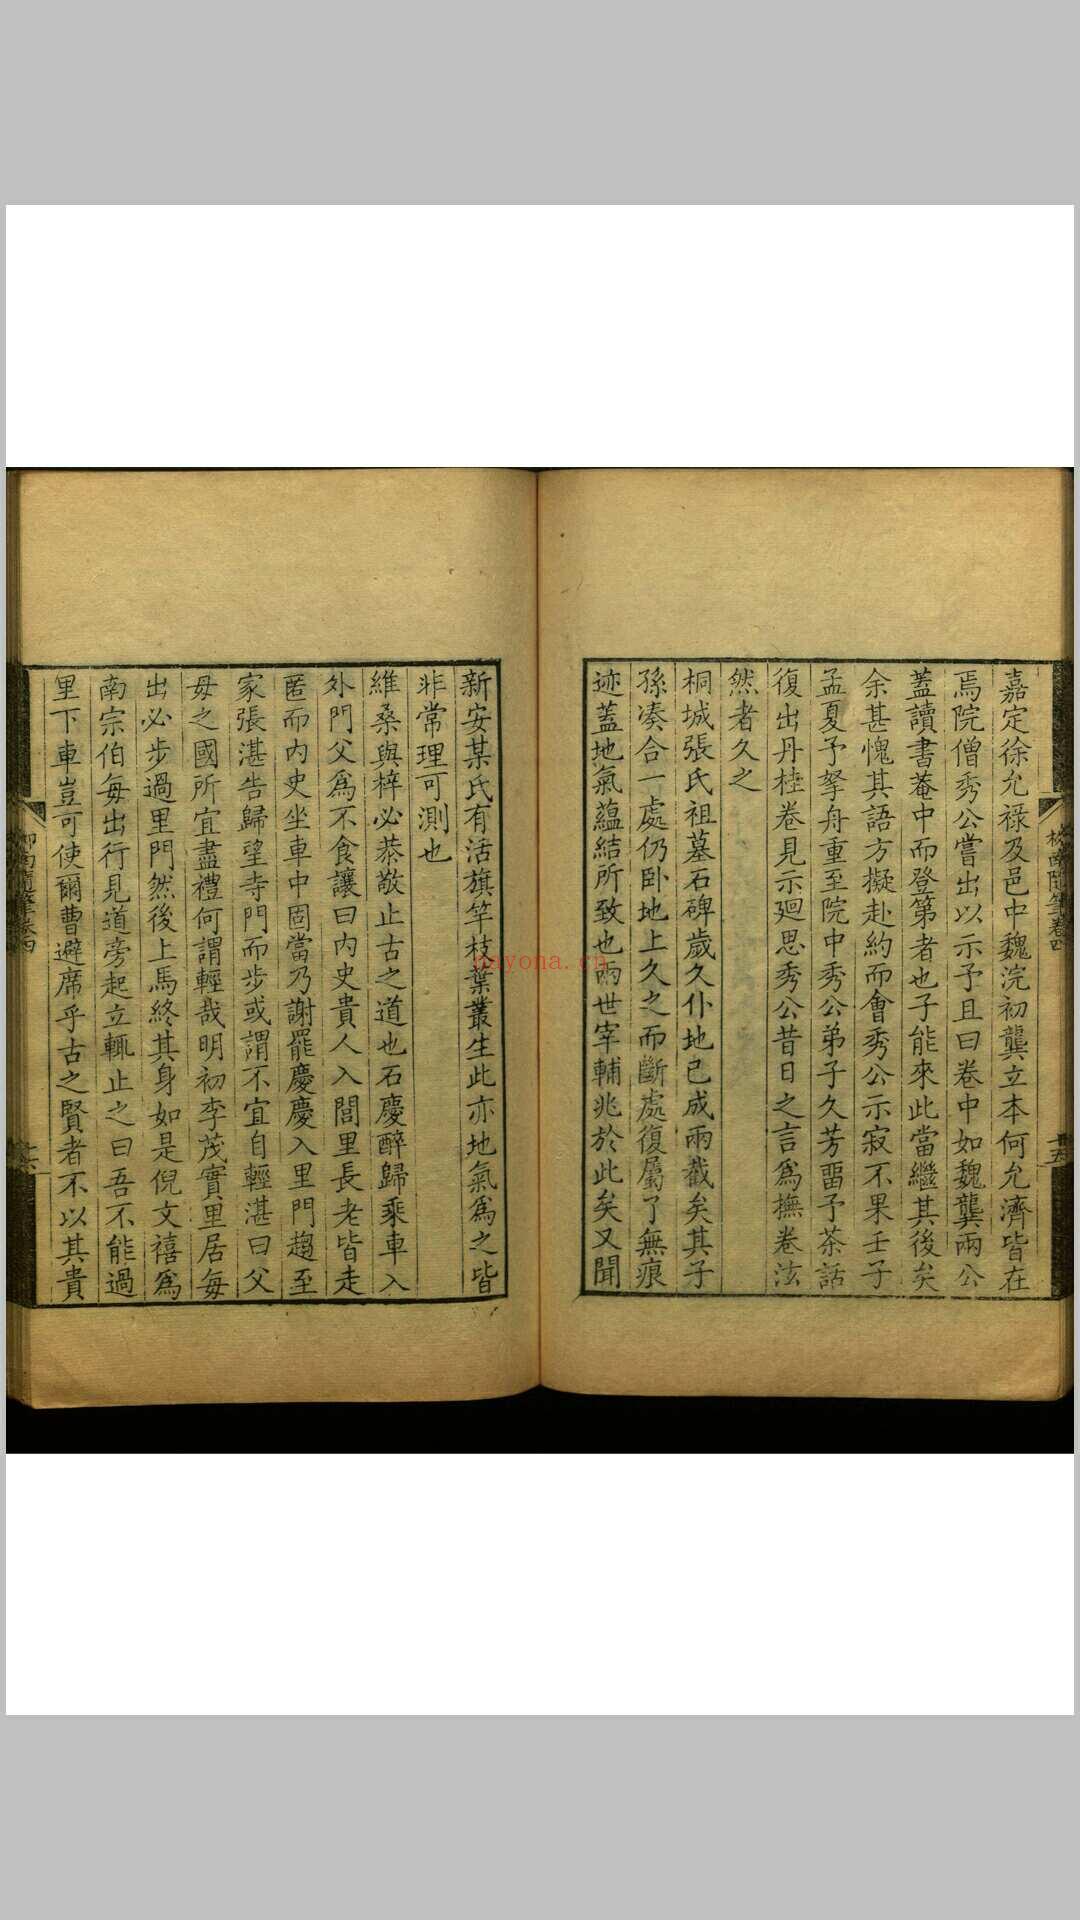 嘉定徐允祿及邑中魏浣初龔立本何允濟皆在
焉院僧秀公嘗出以示予且曰卷中如魏龔兩公
蓋讀書菴中而登第者也子能來此當繼其後矣
余甚愧其語方擬赴約而會秀公示寂不果壬子
孟夏予拏舟重至院中秀公弟子久芳畱予茶話
復出丹桂卷見示廻思秀公昔日之言爲撫卷泫
然者久之
桐城張氏祖墓石碑歲久仆地已成兩截矣其子
孫湊合一處仍卧地上久之而斷處復屬了無痕
迹蓋地氣蘊結所致也兩世宰輔兆於此矣又聞
新安某氏有活旗竿枝葉叢生此亦地氣爲之皆
非常理可測也
維桑與梓必恭敬止古之道也石慶醉歸乘車入
外門父爲不食讓曰內史貴人入閭里長老皆走
匿而內史坐車中固當乃謝罷慶慶入里門趨至
家張湛告歸望寺門而步或謂不宜自輕湛曰父
母之國所宜盡禮何謂輕哉明初李茂實里居每
出必步過里門然後上馬終其身如是倪文禧爲
南宗伯每出行見道旁起立輒止之曰吾不能過
里下車豈可使爾曹避席乎古之賢者不以其貴
柳南隨筆卷四
十五
柳南隨筆卷四
十六
nayona.cn